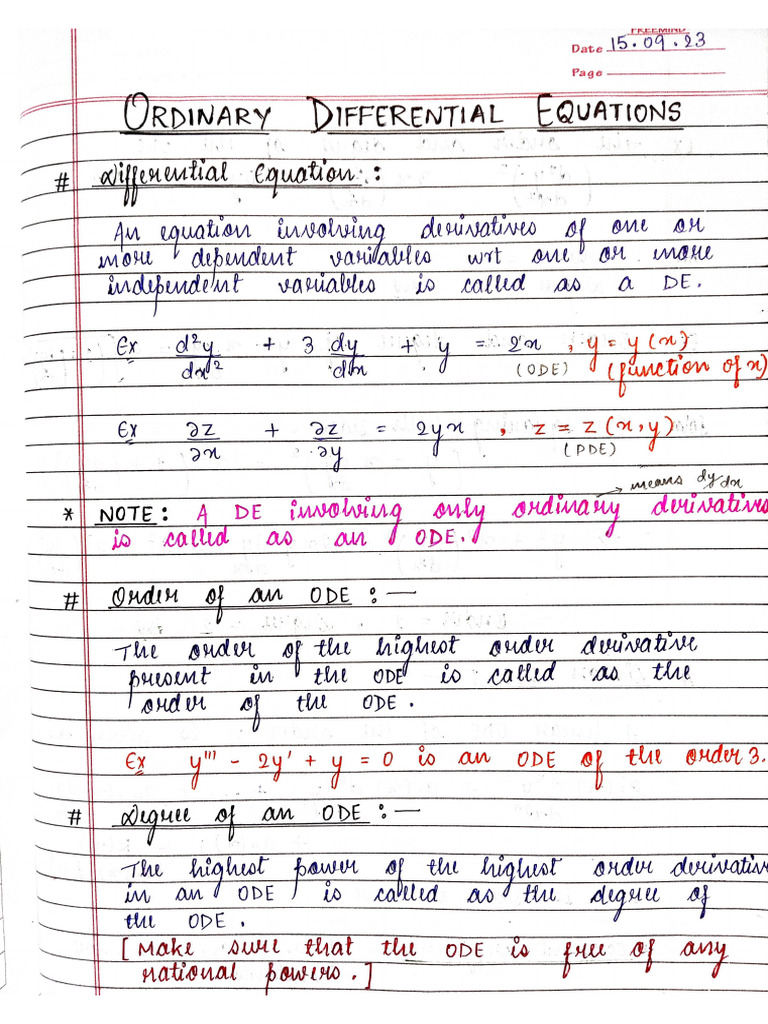 FREEMIND
Date 15.09.23
Page
ORDINARY DIFFERENTIAL EQUATIONS
# Differential Equation :
An equation involving derivatives of one or
more dependent variables wrt one or more
independent variables is called as a DE.
Ex d²y/dx² + 3 dy/dx + y = 2x , y = y(x)
(ODE) (function of x)
Ex ∂z/∂x + ∂z/∂y = 2yx , z = z(x,y)
(PDE)
→ means dy/dx
* NOTE: A DE involving only ordinary derivatives
is called as an ODE.
# Order of an ODE :—
The order of the highest order derivative
present in the ODE is called as the
order of the ODE.
Ex y''' - 2y' + y = 0 is an ODE of the order 3.
# Degree of an ODE :—
The highest power of the highest order derivative
in an ODE is called as the degree of
the ODE.
[Make sure that the ODE is free of any
rational powers.]